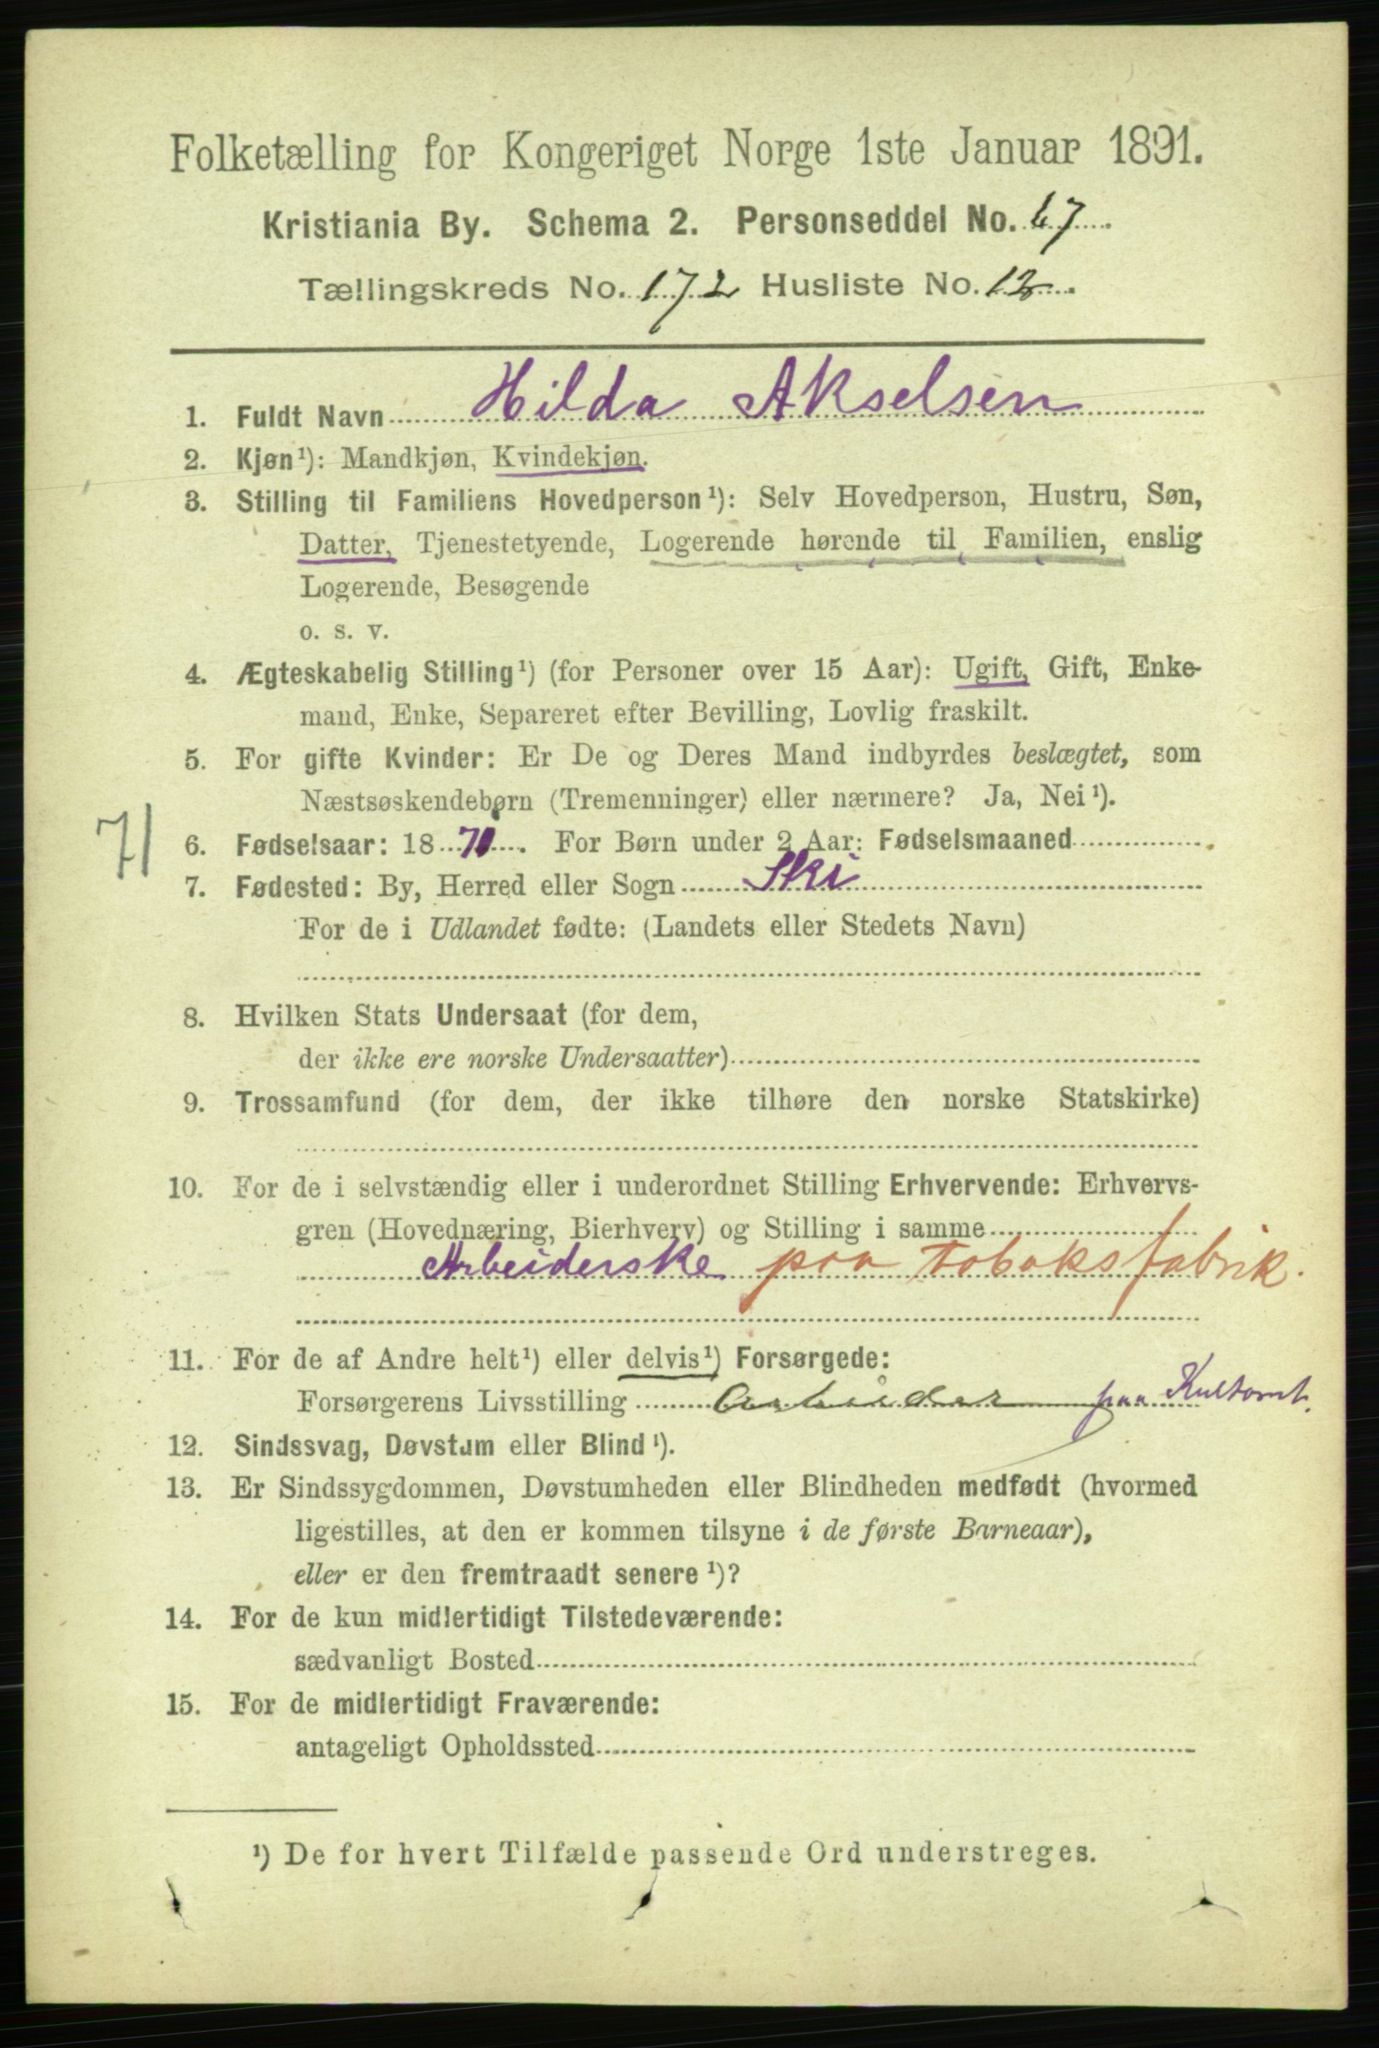 Folketælling for Kongeriget Norge 1ste Januar 1891.
Kristiania By. Schema 2. Personseddel No. 67.
Tællingskreds No. 172 Husliste No. 12.
1. Fuldt Navn Hilda Akselsen
2. Kjøn¹): Mandkjøn, Kvindekjøn.
3. Stilling til Familiens Hovedperson¹): Selv Hovedperson, Hustru, Søn,
Datter, Tjenestetyende, Logerende hørende til Familien, enslig
Logerende, Besøgende
o. s. v.
4. Ægteskabelig Stilling¹) (for Personer over 15 Aar): Ugift, Gift, Enke-
mand, Enke, Separeret efter Bevilling, Lovlig fraskilt.
5. For gifte Kvinder: Er De og Deres Mand indbyrdes beslægtet, som
Næstsøskendebørn (Tremenninger) eller nærmere? Ja, Nei¹).
71
6. Fødselsaar: 1871. For Børn under 2 Aar: Fødselsmaaned
7. Fødested: By, Herred eller Sogn Ski
For de i Udlandet fødte: (Landets eller Stedets Navn)
8. Hvilken Stats Undersaat (for dem,
der ikke ere norske Undersaatter)
9. Trossamfund (for dem, der ikke tilhøre den norske Statskirke)
10. For de i selvstændig eller i underordnet Stilling Erhvervende: Erhvervs-
gren (Hovednæring, Bierhverv) og Stilling i samme
Arbeiderske paa tobaksfabrik.
11. For de af Andre helt¹) eller delvis¹) Forsørgede:
Forsørgerens Livsstilling Arbeider paa
12. Sindssvag, Døvstum eller Blind¹).
13. Er Sindssygdommen, Døvstumheden eller Blindheden medfødt (hvormed
ligestilles, at den er kommen tilsyne i de første Barneaar),
eller er den fremtraadt senere¹)?
14. For de kun midlertidigt Tilstedeværende:
sædvanligt Bosted
15. For de midlertidigt Fraværende:
antageligt Opholdssted
¹) De for hvert Tilfælde passende Ord understreges.